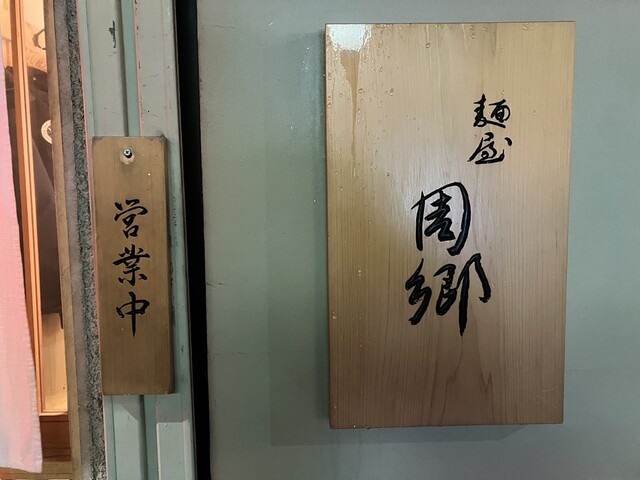 営業中
麺屋
周郷